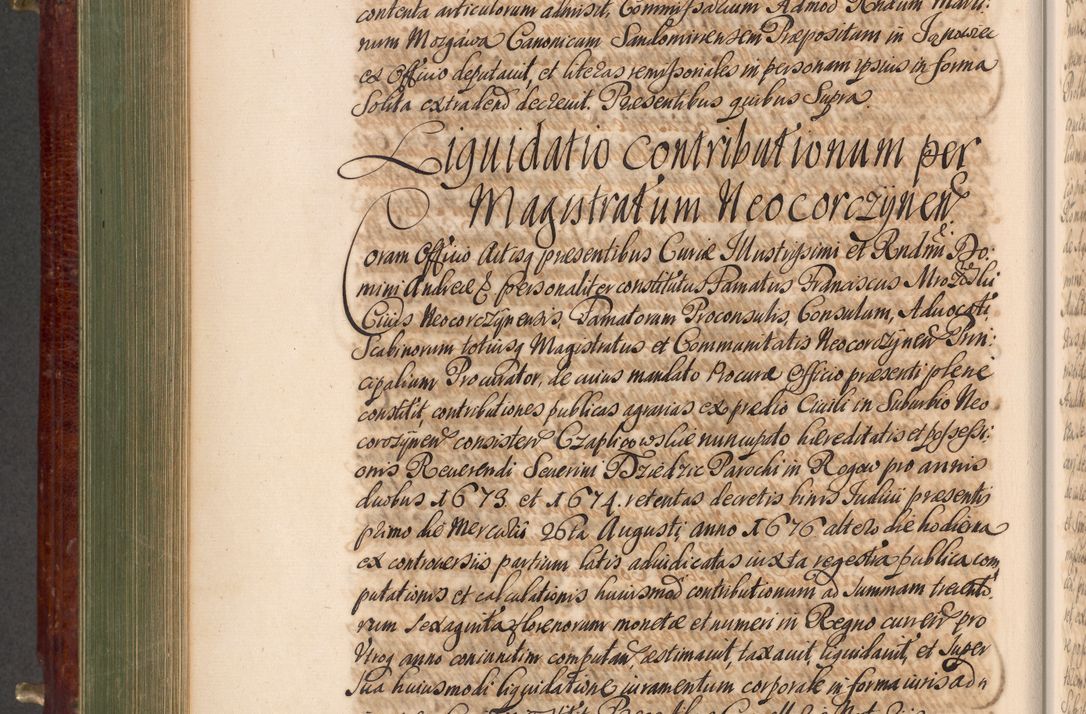 contenta articulorum admisit, Commissarium Admod Rndum Marti:
num Mozgawa Canonicum Sandomiriensem Præpositum in
ex Officio deputauit, et literas remissoriales in personam ipsius in forma
solita extradend decreuit. Præsentibus quibus supra.
Liquidatio contributionum per
Magistratum Neocorczÿnen
Coram Officio Actisq præsentibus Curiæ Illustrissimi et Rndmi Do:
mini Andreæ &c personaliter constitutus Famatus Franciscus
Ciuis Neocorczÿnensis, Famatorum Proconsulis, Consulum, Aduocati,
Scabinorum totiusq Magistratus et Communitatis Neocorczÿnen Prin:
cipalium Procurator, de cuius mandato Procuræ Officio præsenti plene
constitit, contributiones publicas agrarias ex prædio Ciuili in Suburbio Neo
corczÿnen consisten Czaplicowskie nuncupato hæreditatis et possessi:
onis Reuerendi Seuerini Dziedzic Parochi in Rogow pro annis
duobus 1673. et 1674. retentas decretis binis Iudicii præsentis
primo die Mercurii 26ta Augusti anno 1676 altero die hodierna
ex controuersiis partium latis adiudicatas iuxta regestra publica com
putationis et calculationis huiusmod contributionum ad summam trecento:
rum sexaginta florenorum monetæ et numeri in Regno curren pro
vtroq anno coniunctim computan æstimauit, taxauit, liquidauit, et super
sua huiusmodi liquidatione iuramentum corporale in forma iuris ad